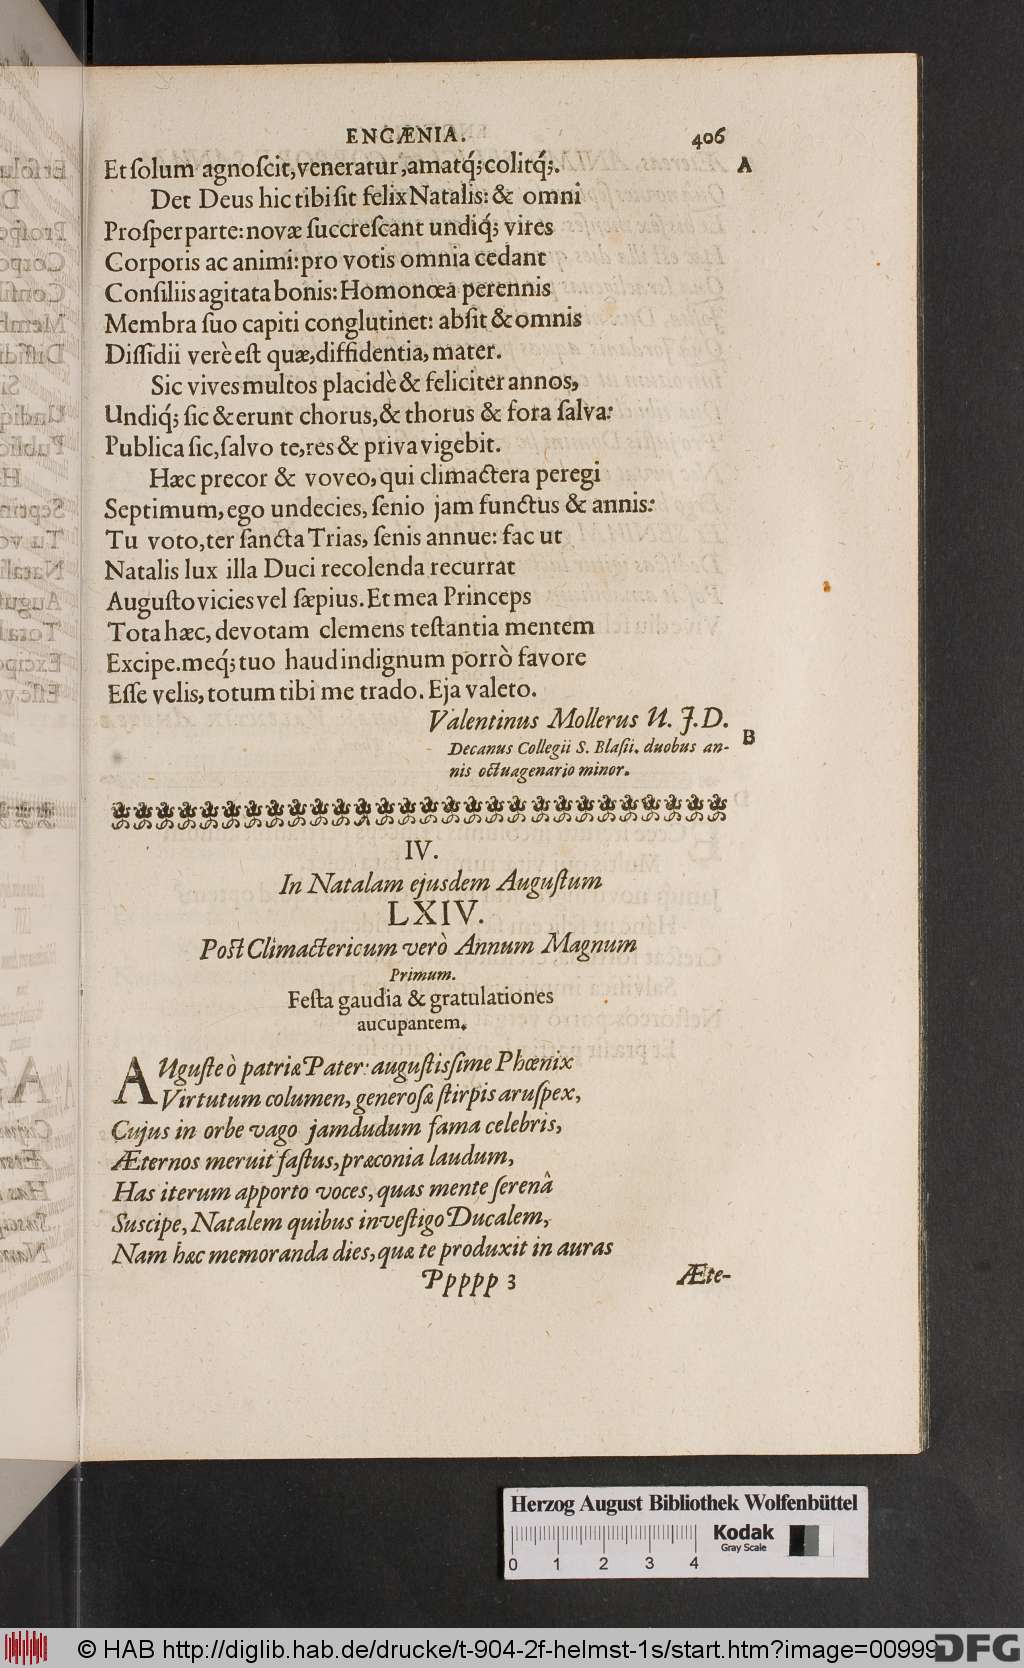 ENCÆNIA. 406
Et ſolum agnoſcit, veneratur, amatq́; colitq́;. A
Det Deus hic tibi ſit felix Natalis: & omni
Proſper parte: novæ ſuccreſcant undiq́; vires
Corporis ac animi: pro votis omnia cedant
Conſiliis agitata bonis: Homonœa perennis
Membra ſuo capiti conglutinet: abſit & omnis
Diſſidii verè eſt quæ, diffidentia, mater.
Sic vives multos placidè & feliciter annos,
Undiq́; ſic & erunt chorus, & thorus & fora ſalva:
Publica ſic, ſalvo te, res & priva vigebit.
Hæc precor & voveo, qui climactera peregi
Septimum, ego undecies, ſenio jam functus & annis:
Tu voto, ter ſancta Trias, ſenis annue: fac ut
Natalis lux illa Duci recolenda recurrat
Auguſto vicies vel ſæpius. Et mea Princeps
Tota hæc, devotam clemens teſtantia mentem
Excipe. meq́; tuo haud indignum porrò favore
Eſſe velis, totum tibi me trado. Eja valeto.
Valentinus Mollerus U. J. D.
Decanus Collegii S. Blaſii. duobus an- B
nis octuagenario minor.
IV.
In Natalam ejusdem Auguſtum
LXIV.
Poſt Climactericum verò Annum Magnum
Primum.
Feſta gaudia & gratulationes
aucupantem.
AUguſte ò patriæ Pater: auguſtisſime Phœnix
Virtutum columen, generoſæ ſtirpis aruſpex,
Cujus in orbe vago jamdudum fama celebris,
Æternos meruit faſtus, præconia laudum,
Has iterum apporto voces, quas mente ſerenâ
Suscipe, Natalem quibus inveſtigo Ducalem,
Nam hæc memoranda dies, quæ te produxit in auras
Ppppp 3 Æte-
Herzog August Bibliothek Wolfenbüttel
Kodak
Gray Scale
0 1 2 3 4
© HAB http://diglib.hab.de/drucke/t-904-2f-helmst-1s/start.htm?image=00999
DFG